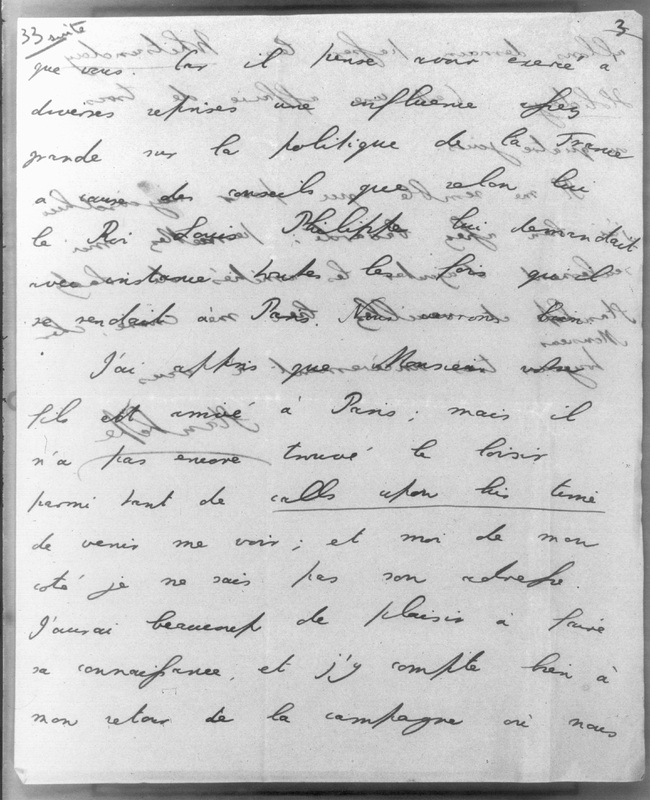 33 suite
3
que vous. Car il pense avoir exercé à
diverses reprises une influence assez
grande sur la politique de la France
a cause des conseils que selon lui
le Roi Louis Philippe lui demandait
avec instance toutes les fois qu'il
se rendait à Paris. Nous verrons bien
J'ai appris que Monsieur votre
fils est arrivé à Paris ; mais il
n'a pas encore trouvé le loisir
parmi tant de calls upon his time
de venir me voir ; et moi de mon
coté je ne sais pas son adresse.
J'aurai beaucoup de plaisir à faire
sa connaissance, et j'y compte bien à
mon retour de la campagne où nous